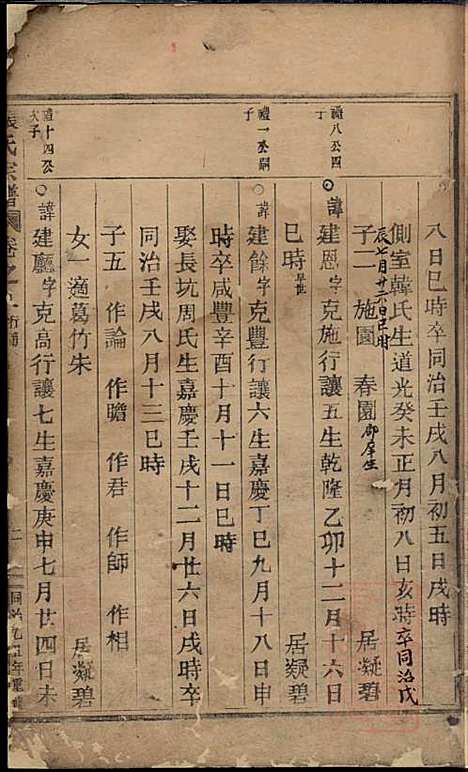 八日巳時卒同治壬戌八月初五日戌時
側室韓氏生道光癸未正月初八日亥時卒同治戊
辰七月廿六日巳時
子二 施園 春園郡庠生 居凝碧
禮八公四子
諱建恩字克施行讓五生乾隆乙卯十二月十六日
巳時早世 居凝碧
禮一公嗣子
諱建餘字克豐行讓六生嘉慶丁巳九月十八日申
時卒咸豐辛酉十月十一日巳時
娶長坑周氏生嘉慶壬戌十二月廿六日戌時卒
同治壬戌八月十三巳時
子五 作論 作瞻 作君 作師 作相
女一適葛竹朱 居凝碧
禮十四公次子
諱建廳字克高行讓七生嘉慶庚申七月廿四日未
氏宗譜
同治九年重